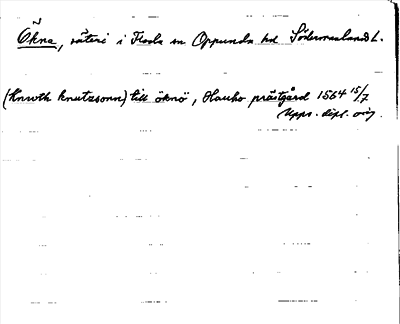 Ökna, säteri i Floda sn Oppunda hd Södermanlands l.
(Knwth knutzsonn) till öknö, Hauho prästgård 1564 15/7
Upps. dipl. orig.